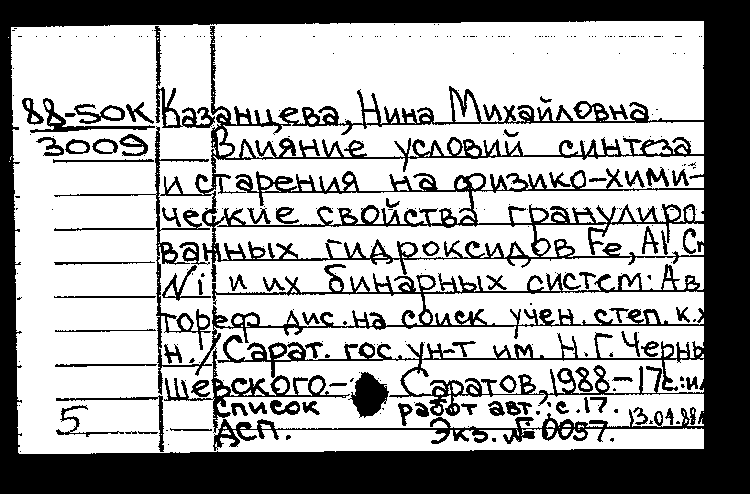 88-50К Казанцева, Нина Михайловна.
3009 Влияние условий синтеза
и старения на физико-хими-
ческие свойства гранулиро-
ванных гидроксидов Fe, Al, Cr
Ni и их бинарных систем: Ав
тореф дис. на соиск. учен. степ. к.х
н. / Сарат. гос. ун-т им. Н.Г. Черны
шевского.- Саратов, 1988.-17с.:ил
Список работ авт.: с.17.
5. ДСП. Экз. № 0057. 13.04.88